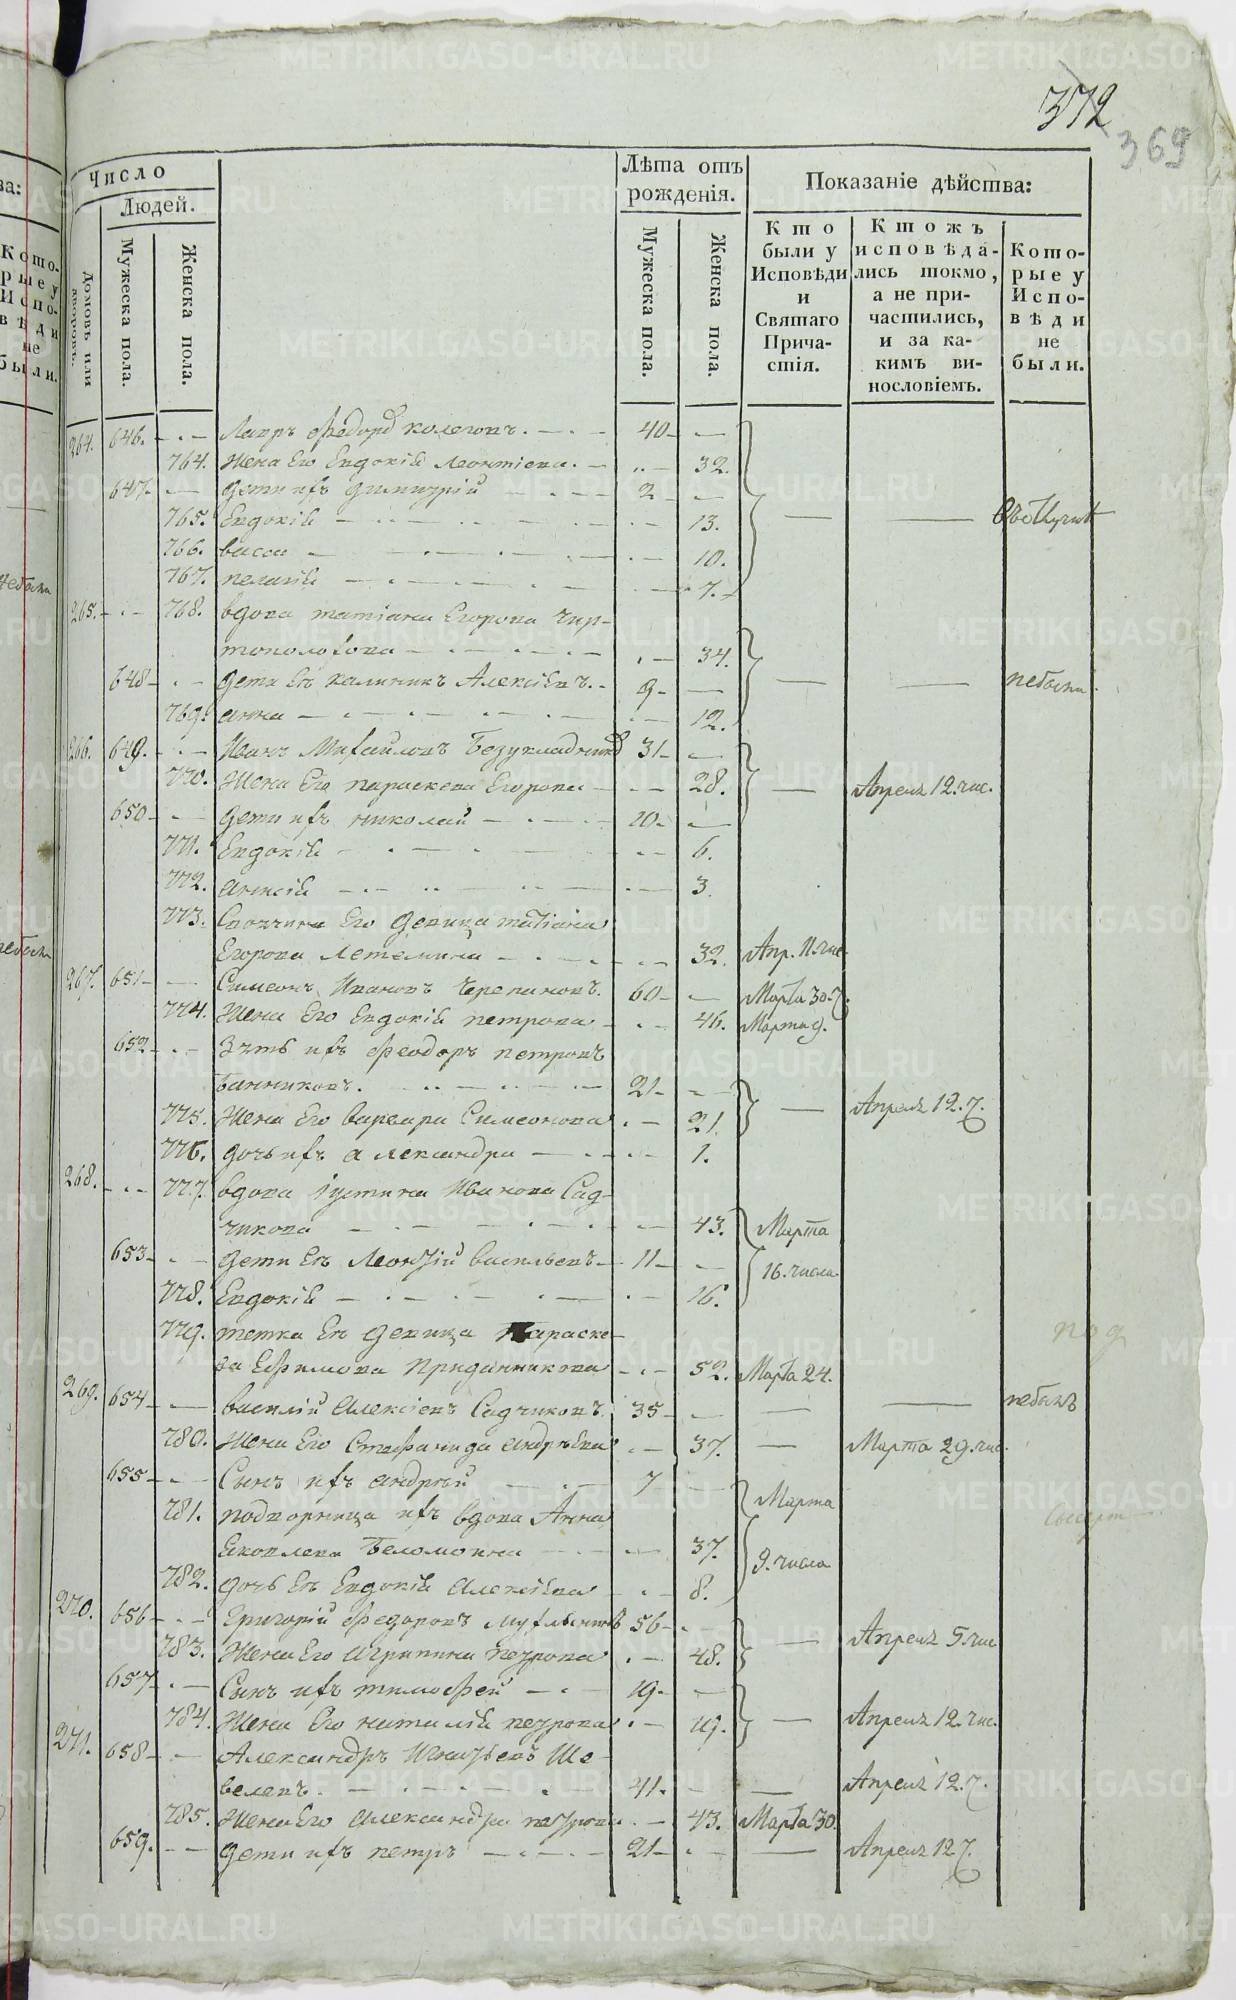 372
369
Число
Людей.
Домовъ или дворовъ.
Мужеска пола.
Женска пола.
Лѣта отъ рожденія.
Мужеска пола.
Женска пола.
Показаніе дѣйства:
Кто были у Исповѣди и Святаго Причастія.
Ктожъ исповѣдались токмо, а не причастились, и за какимъ винословіемъ.
Которые у Исповѣди не были.
264. 646. Лавръ Федоро 40
764. Жена Его Евдокія Леонтіева. 32.
647. дети ихъ димитрій 2
765. Евдокія 13.
766. васса 10.
767. пелагія 7.
265. 768. вдова татіана Егорова чир-
тополохова 34.
648 дети Ея калиникъ Алексіевъ. 9 небыли.
769. анна 12.
266. 649. Иванъ Михайловъ Безукладнико 31
770. Жена Его параскева Егорова 28. Апреля 12. чис.
650 дети ихъ николай 10
771. Евдокія 6.
772. 3.
773. Своячина Его девица татіана
Егорова Летемина 32. Апр. 11. чис.
267. 651 Симеонъ Ивановъ Черепановъ. 60 Марта 30. ч.
774. Жена Его Евдокія петрова 46. Марта 9.
652 Зять ихъ Феодоръ петровъ
Банниковъ. 21
775. Жена Его Варвара Симеонова 21. Апреля 12. ч.
776. дочь ихъ александра 1.
268. 777. вдова Іустина Иванова Сад-
чикова 43. Марта
653 дети Ея Леонтій васильевъ 11 16. числа
778. Евдокія 16.
779. тетка Ея девица Параске-
ва Ефимова Приданникова 52. Марта 24.
под
269. 654 василій алексіевъ Садчиковъ 35 небылъ
780. Жена Его Стефанида андрѣева 37. Марта 29. чис.
655 Сынъ ихъ андрей 7 Марта
781. подворница ихъ вдова Анна
Яковлева Беломоина 37. 9. числа
782. дочь Ея Евдокія алексіева 8.
270. 656 Григорій Федоровъ 56
783. Жена Его Агрипина петрова 48. Апреля 5. чис.
657 Сынъ ихъ тимофей 19
784. Жена Его наталія петрова 19. Апреля 12. чис.
271. 658 Александръ Игнатьевъ Ше-
велевъ. 41. Апреля 12. ч.
785. Жена Его александра петрова 43. Марта 30.
659. дети ихъ петръ 21 Апреля 12 ч.
METRIKI.GASO-URAL.RU